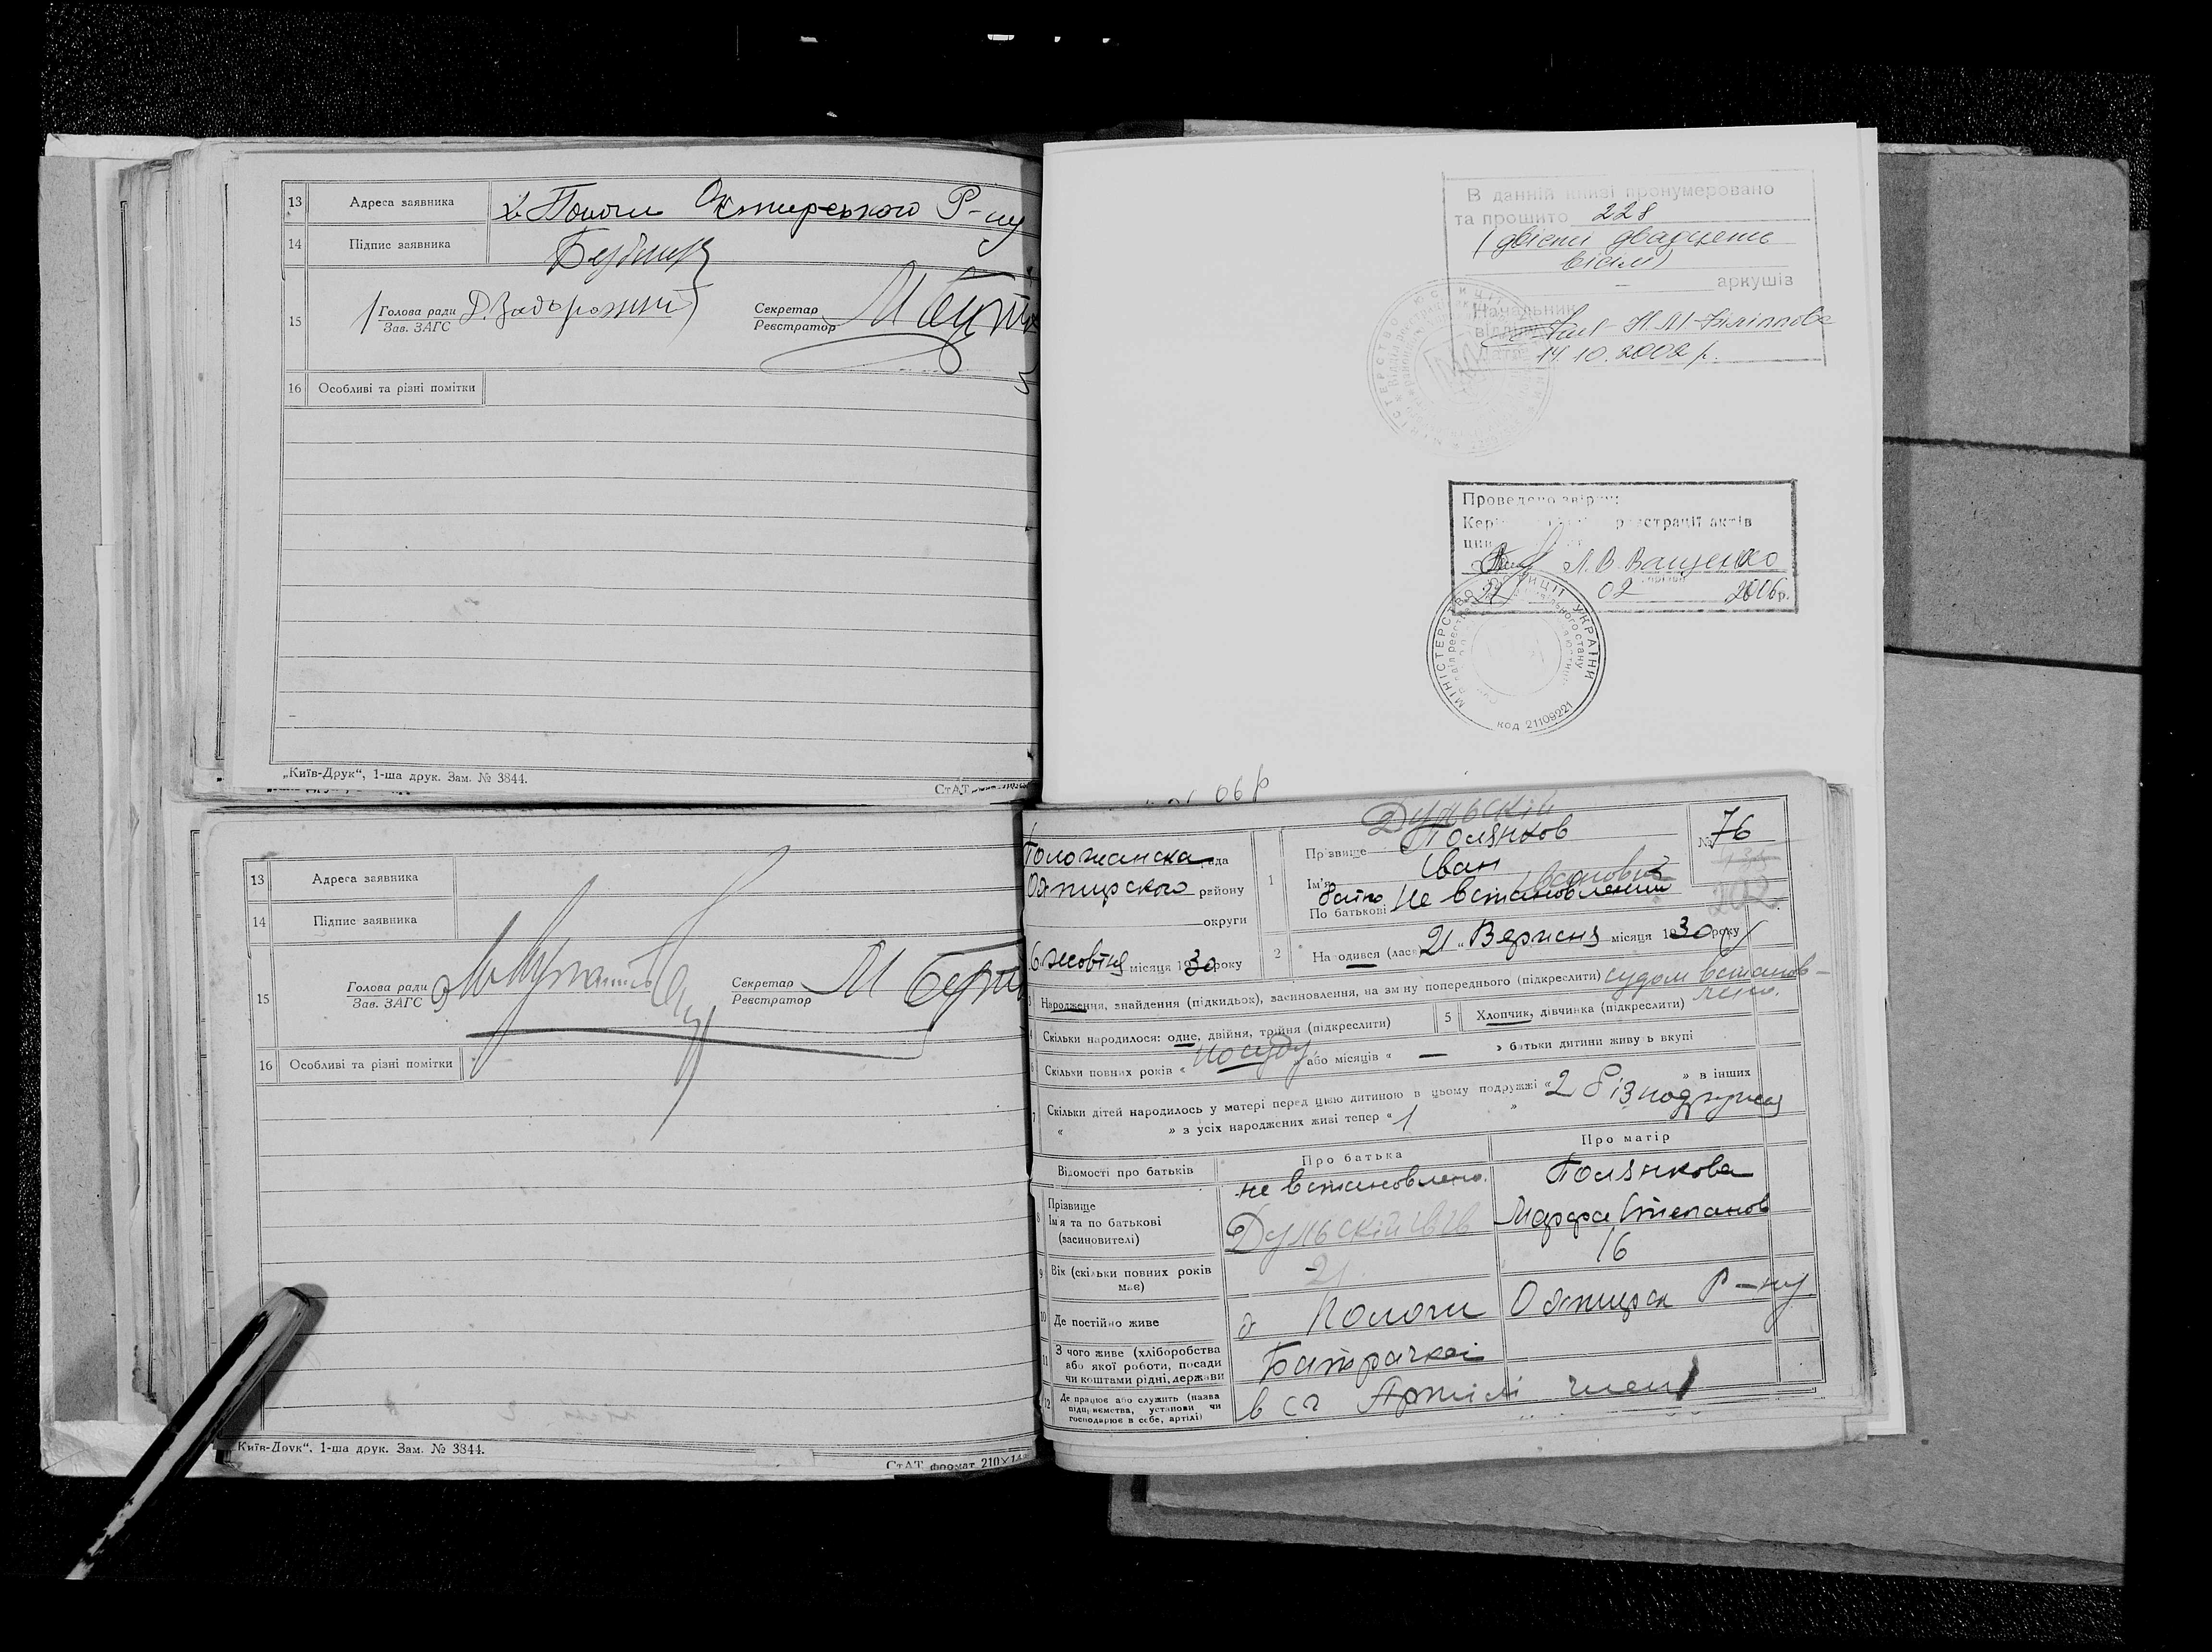 13 Адреса заявника х. Пологи Охтирського Р-ну
14 Підпис заявника
15 Голова ради Д. Задорожний Секретар
Зав. ЗАГС Реєстратор
16 Особливі та різні помітки
„Київ-Друк“, 1-ша друк. Зам. № 3844.
СтАТ
В данній книзі пронумеровано
та прошито 228
(двісти двадцять
вісім)
аркушів
Начальник
відділу Н.М.
14.10.2002 р.
Проведено звірку
реєстрації актів
Л.В. Ващенко
02 2006р.
МІНІСТЕРСТВО ЮСТИЦІЇ УКРАЇНИ
код 21109221
06 р
13 Адреса заявника
14 Підпис заявника
15 Голова ради Секретар
Зав. ЗАГС Реєстратор
16 Особливі та різні помітки
Київ-Друк“, 1-ша друк. Зам. № 3844.
СтАТ формат 210×14
Дульскій
рада
району
округи
6 жовтня місяця 1930 року
1 Прізвище Полянков
Ім'я Іван
Іванович
По батькові батько не встановлений
№ 76
202
2 Народився (лась) 21 „ Вересня місяця 1930 року
3 Народження, знайдення (підкидьок), засиновлення, на зміну попереднього (підкреслити) судом встанов-
лено.
4 Скільки народилося: одне, двійня, трійня (підкреслити) 5 Хлопчик, дівчинка (підкреслити)
6 Скільки повних років « по суду » або місяців « — » батьки дитини живуть вкупі
7 Скільки дітей народилось у матері перед цією дитиною в цьому подружжі « 2 » в інших
« » з усіх народжених живі тепер « 1 »
Відомості про батьків Про батька Про матір
8 Прізвище не встановлено. Полянкова
Ім'я та по батькові Дульскій Ів Ів Марфа Степанов
(засиновителі)
9 Вік (скільки повних років має) 21 16
10 Де постійно живе Пологи Охтирск Р-ну
11 З чого живе (хліборобства
або якої роботи, посади
чи коштами рідні, держави Батрачка
12 Де працює або служить (назва
підприємства, установи чи
господарює в себе, артілі) в СГ Артілі член